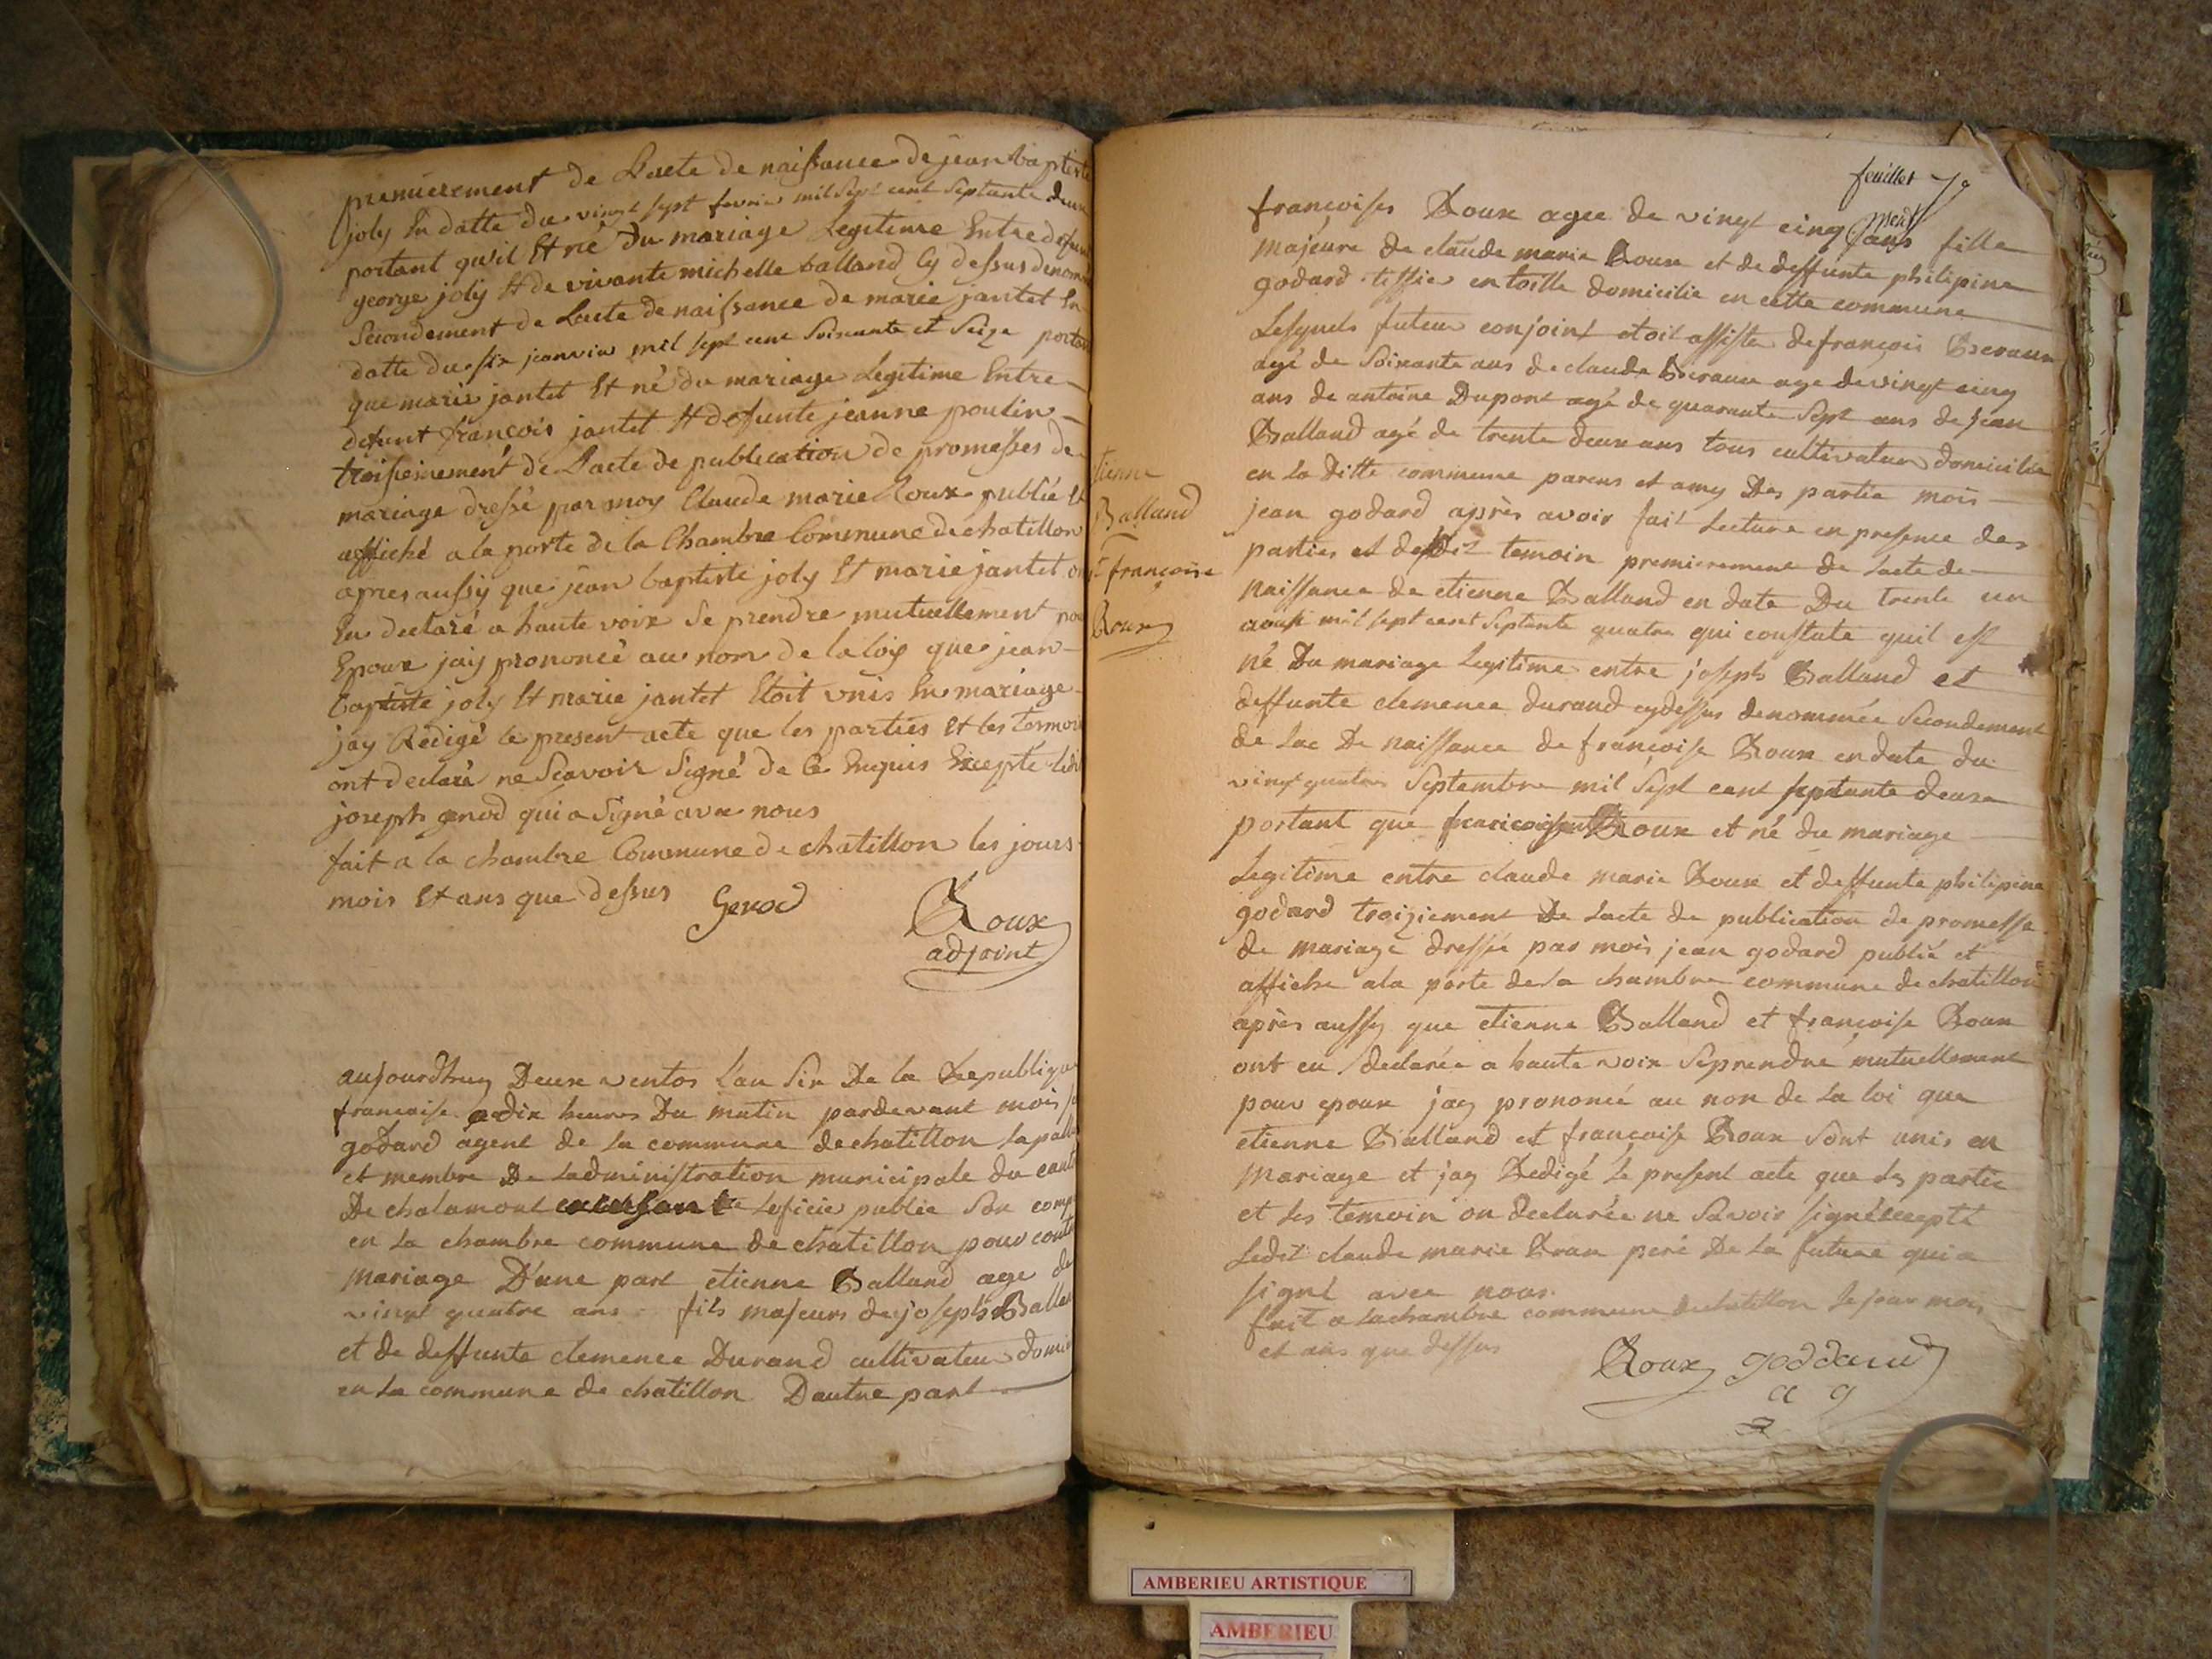 premierement de Lacte de naissance de jean baptiste
joly En datte du vingt sept fevrier mil sept cent septante deux
portant qu'il Et né Du mariage Legitime Entre defunt
george joly Et de vivante michelle balland Cy dessus denom
Secondement de Lacte de naissance de marie jantet En
datte du six janvier mil sept cent soixante et seize portan
que marie jantet Et né du mariage Legitime Entre
defunt françois jantet Et defunte jeanne poulin
troisiemement de Lacte de publication de promesses de
mariage dressé par moy Claude marie Roux publié Et
affiché a la porte de la Chambre Commune de chatillon
apres aussy que jean baptiste joly Et marie jantet on
Eu declaré a haute voix Se prendre mutuellement pou
Epoux jay prononcé au nom de la loy que jean
baptiste joly Et marie jantet Etoit unis En mariage
jay Redigé le present acte que les parties Et les temoin
ont declaré ne Scavoir Signé de Ce Enquis Excepté ledi
joseph genod qui a Signé avec nous
fait a la chambre Commune de chatillon les jours
mois Et ans que dessus
Genod
Roux
adjoint
aujourdhuy Deux ventos Lan Six De la Republique
francaise a dix heures Du matin pardevant mois
godard agent de la commune de chatillon lapall
et membre De Ladministration municipale du cant
De chalamont Loficie publie Son comp
en La chambre commune de chatillon pour cont
mariage D'une part etienne Balland age de
vingt quatre ans fils majeurs de joseph Ballan
et de deffunte clemence Durand cultivateur domi
en La commune de chatillon D'autre part
feuillet 7e
tienne
Balland
françoise
Roux
françoises Roux agee de vingt cinq ans fille
majeure de claude marie Roux et de deffunte philipine
godard tissier en toille domicilie en cette commune
Lesquels futeur conjoint etoit assister de françois
agé de Soixante ans de claude age de vingt cinq
ans de antoine Dupont agé de quarante Sept ans de jean
Balland agé de trente deux ans tous cultivateur domicilie
en La ditte commune parens et amy Des partie mois
jean godard après avoir fait Lecture en presence des
parties et temoin premierement de Lacte de
naissance de etienne Balland en date Du trente un
aoust mil sept cent Septante quatre qui constate quil est
né Du mariage Legitime entre joseph Balland et
deffunte clemence durand cydessus denommée Secondement
de Lac De naissance de françoise Roux en date du
vingt quatre Septembre mil Sept cent septante deux
portant que Roux et né du mariage
Legitime entre claude marie Roux et deffunte philipine
godard troiziement De Lacte de publication de promesse
de mariage dressée par mois jean godard publié et
affiche a la porte de La chambre commune de chatillon
après aussy que etienne Balland et françoise Roux
ont eu declarée a haute voix Seprendre mutuellement
pour epoux jay prononcé au non de La loi que
etienne Balland et françoise Roux Sont unis en
mariage et jay Redigé Le present acte que Les partie
et Les temoin on declarée ne Savoir signé excepté
Ledit claude marie Roux peré De La future qui a
signé avec nous
fait a Lachambre commune dechatillon Le jour mois
et ans que dessus
Roux goddard
a g
AMBERIEU ARTISTIQUE
AMBERIEU